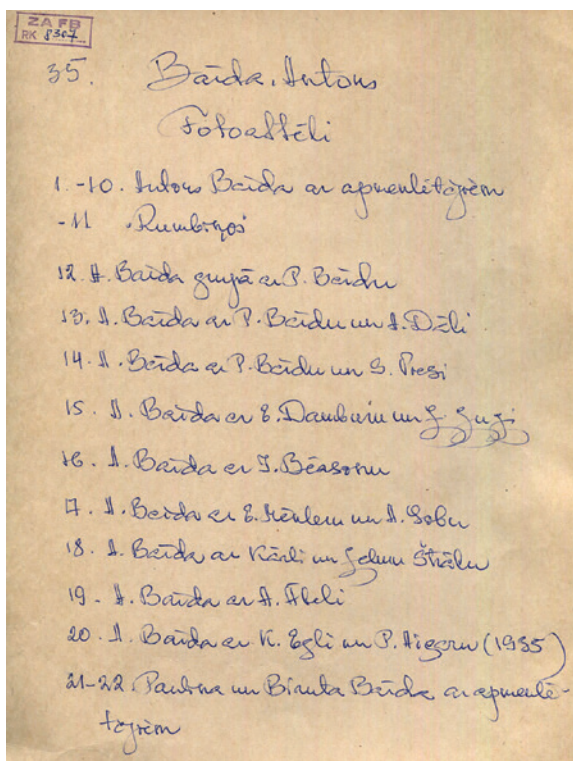 ZA FB
RK 8307
35. Baida, Antons
Fotoattēli
1.-10. Antons Baida ar apmeklētājiem
-11 Rumbiņos
12. A. Baida grupā ar P. Baidu
13. A. Baida ar P. Baidu un A. Dēli
14. A. Baida ar P. Baidu un S.
15. A. Baida ar E. un
16. A. Baida ar J.
17. A. Baida ar E. un A.
18. A. Baida ar Kārli un Štrālu
19. A. Baida ar A. Ābeli
20. A. Baida ar K. Egli un P. Aigaru (1935)
21-22. Paulīna un Biruta Baida ar apmeklē-
tājiem